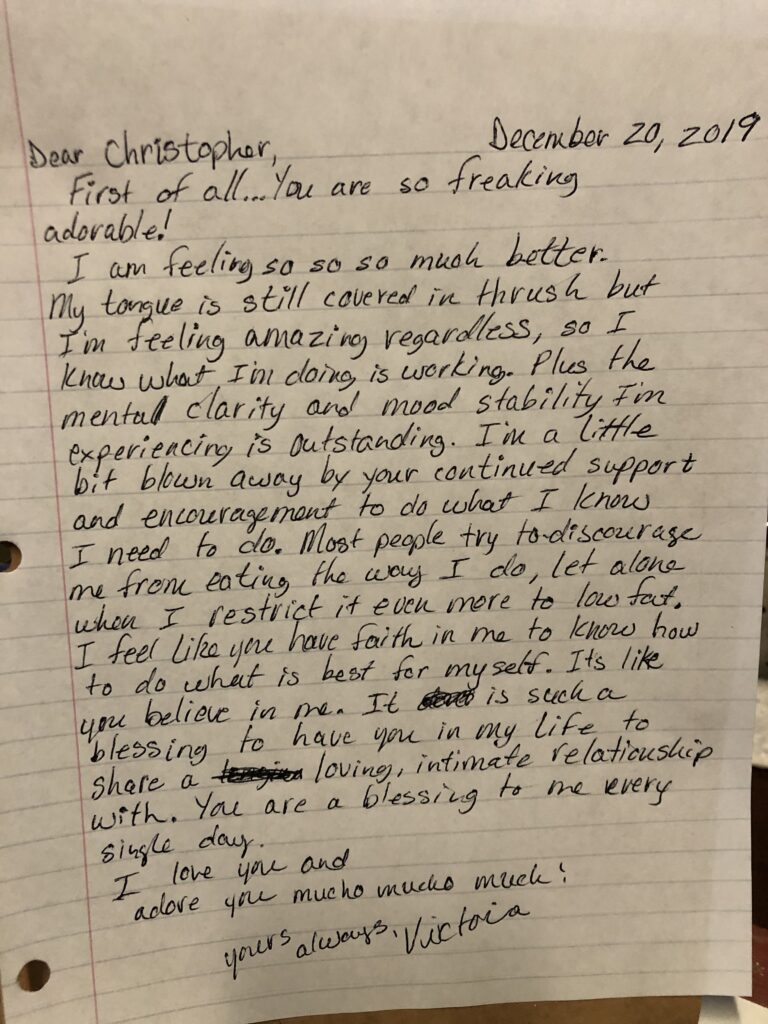 December 20, 2019
Dear Christopher,
First of all...You are so freaking
adorable!
I am feeling so so so much better.
My tongue is still covered in thrush but
I'm feeling amazing regardless, so I
know what I'm doing is working. Plus the
mental clarity and mood stability I'm
experiencing is outstanding. I'm a little
bit blown away by your continued support
and encouragement to do what I know
I need to do. Most people try to discourage
me from eating the way I do, let alone
when I restrict it even more to low fat.
I feel like you have faith in me to know how
to do what is best for myself. It's like
you believe in me. It is such a
blessing to have you in my life to
share a loving, intimate relationship
with. You are a blessing to me every
single day.
I love you and
adore you mucho mucho much!
yours always,
Victoria